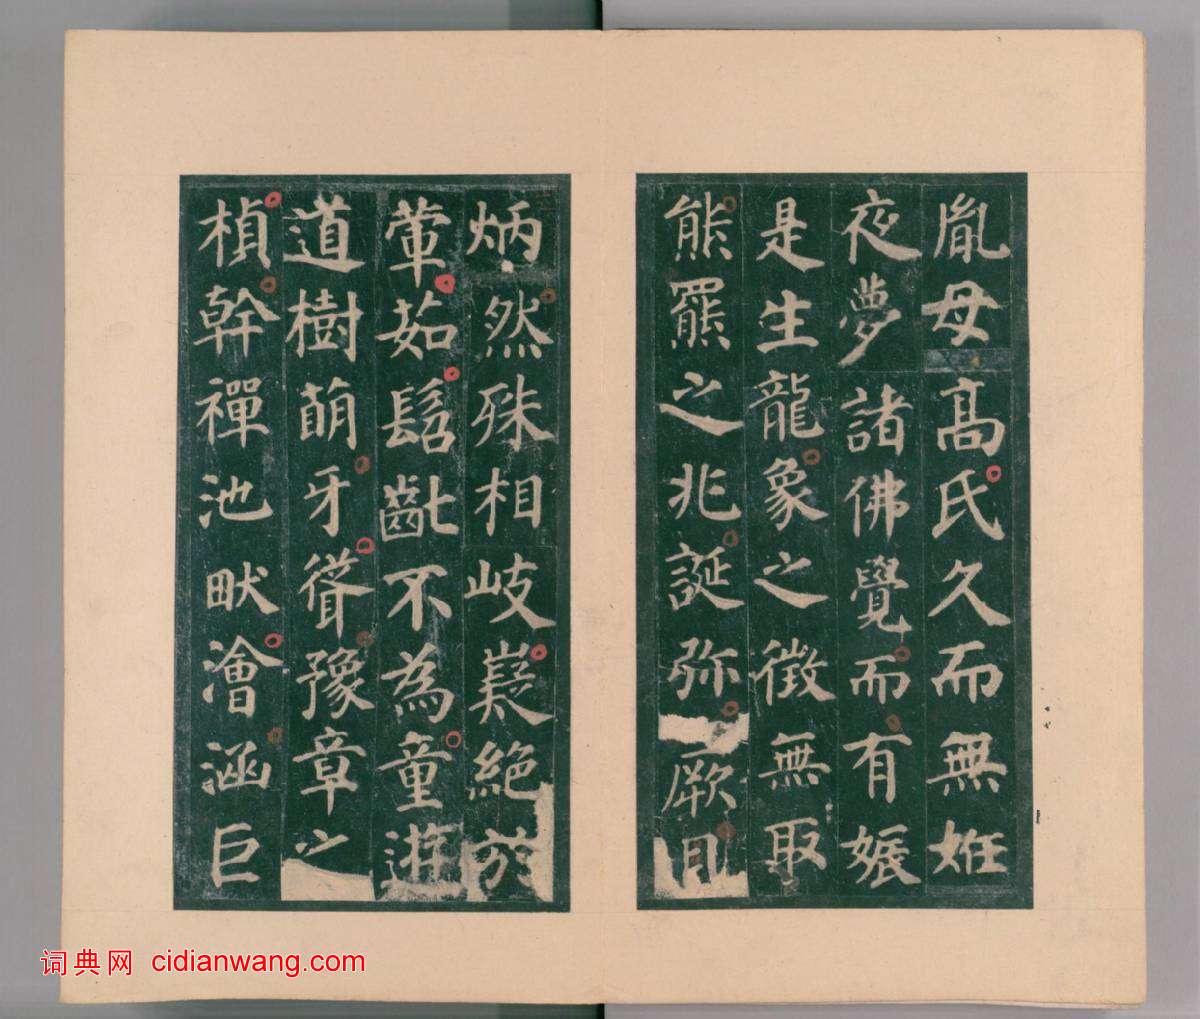 胤母高氏久而無妊
夜夢諸佛覺而有娠
是生龍象之徵無取
熊羆之兆誕弥厥月
炳然殊相岐嶷絶於
葷茹髫齔不為童遊
道樹萌牙聳豫章之
楨幹禪池畎澮涵巨
词典网 cidianwang.com